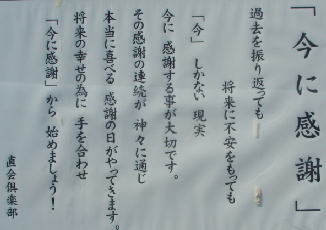 「今に感謝」
過去を振り返っても
将来に不安をもっても
「今」しかない 現実
今に 感謝する事が大切です。
その感謝の連続が 神々に通じ
本当に喜べる 感謝の日がやってきます。
将来の幸せの為に 手を合わせ
「今に感謝」から 始めましょう!
直会倶楽部